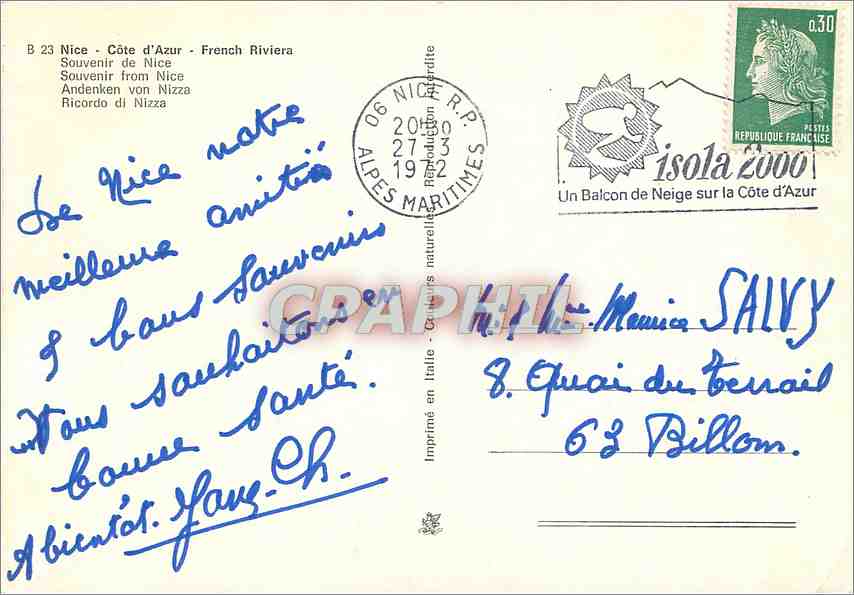 B 23 Nice - Côte d'Azur - French Riviera
Souvenir de Nice
Souvenir from Nice
Andenken von Nizza
Ricordo di Nizza
De Nice notre
meilleure amitiés
& bons souvenirs
Vous souhaitons en
bonne santé.
A bientôt.
Imprimé en Italie - Couleurs naturelles. Reproduction interdite
06 NICE R.P.
20H30
27-3
1972
ALPES MARITIMES
isola 2000
Un Balcon de Neige sur la Côte d'Azur
0,30
POSTES
REPUBLIQUE FRANÇAISE
CPAPHIL
Mr & Mme Maurice SALVY
8. Quai du Terrail
63 Billom.